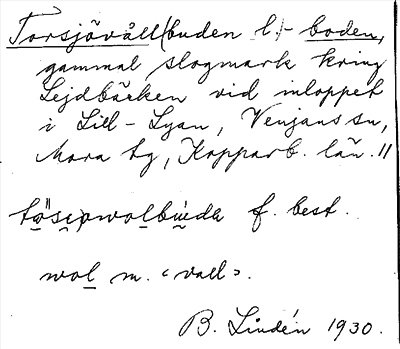 Torsjövåll(buden l.)- boden,
gammal slogmark kring
Lejdbäcken vid inloppet
i Lill-Lyan, Venjans sn,
Mora tg, Kopparb. län. ||
f. best.
wol m. "vall".
B. Lindén 1930.